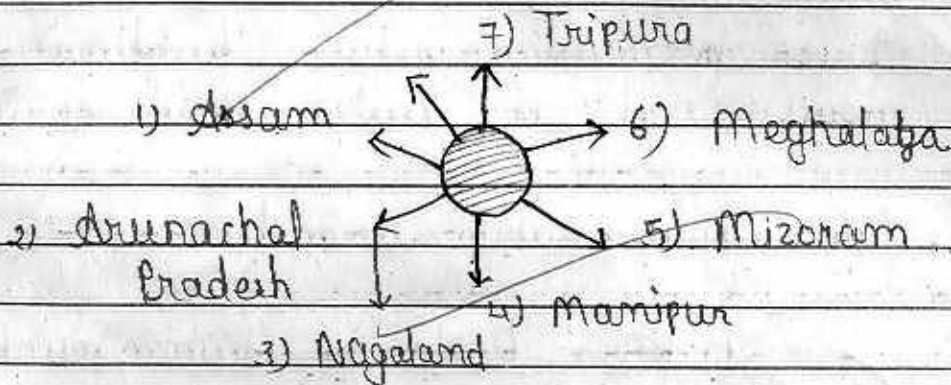 7) Tripura
1) Assam
6) Meghalaya
2) Arunachal
Pradesh
5) Mizoram
4) Manipur
3) Nagaland